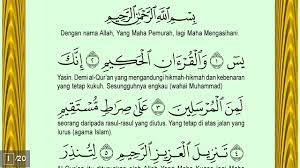 بِسْمِ اللَّهِ الرَّحْمَٰنِ الرَّحِيمِ
Dengan nama Allah, Yang Maha Pemurah, lagi Maha Mengasihani.
يسٓ ١ وَالْقُرْءَانِ الْحَكِيمِ ٢ إِنَّكَ
Yasin. Demi al-Qur'an yang mengandungi hikmah-hikmah dan kebenaran
yang tetap kukuh. Sesungguhnya engkau (wahai Muhammad)
لَمِنَ الْمُرْسَلِينَ ٣ عَلَىٰ صِرَاطٍ مُّسْتَقِيمٍ
seorang daripada rasul-rasul yang diutus. Yang tetap di atas jalan yang
lurus (agama Islam).
٤ تَنزِيلَ الْعَزِيزِ الرَّحِيمِ ٥ لِتُنذِرَ
1 / 20